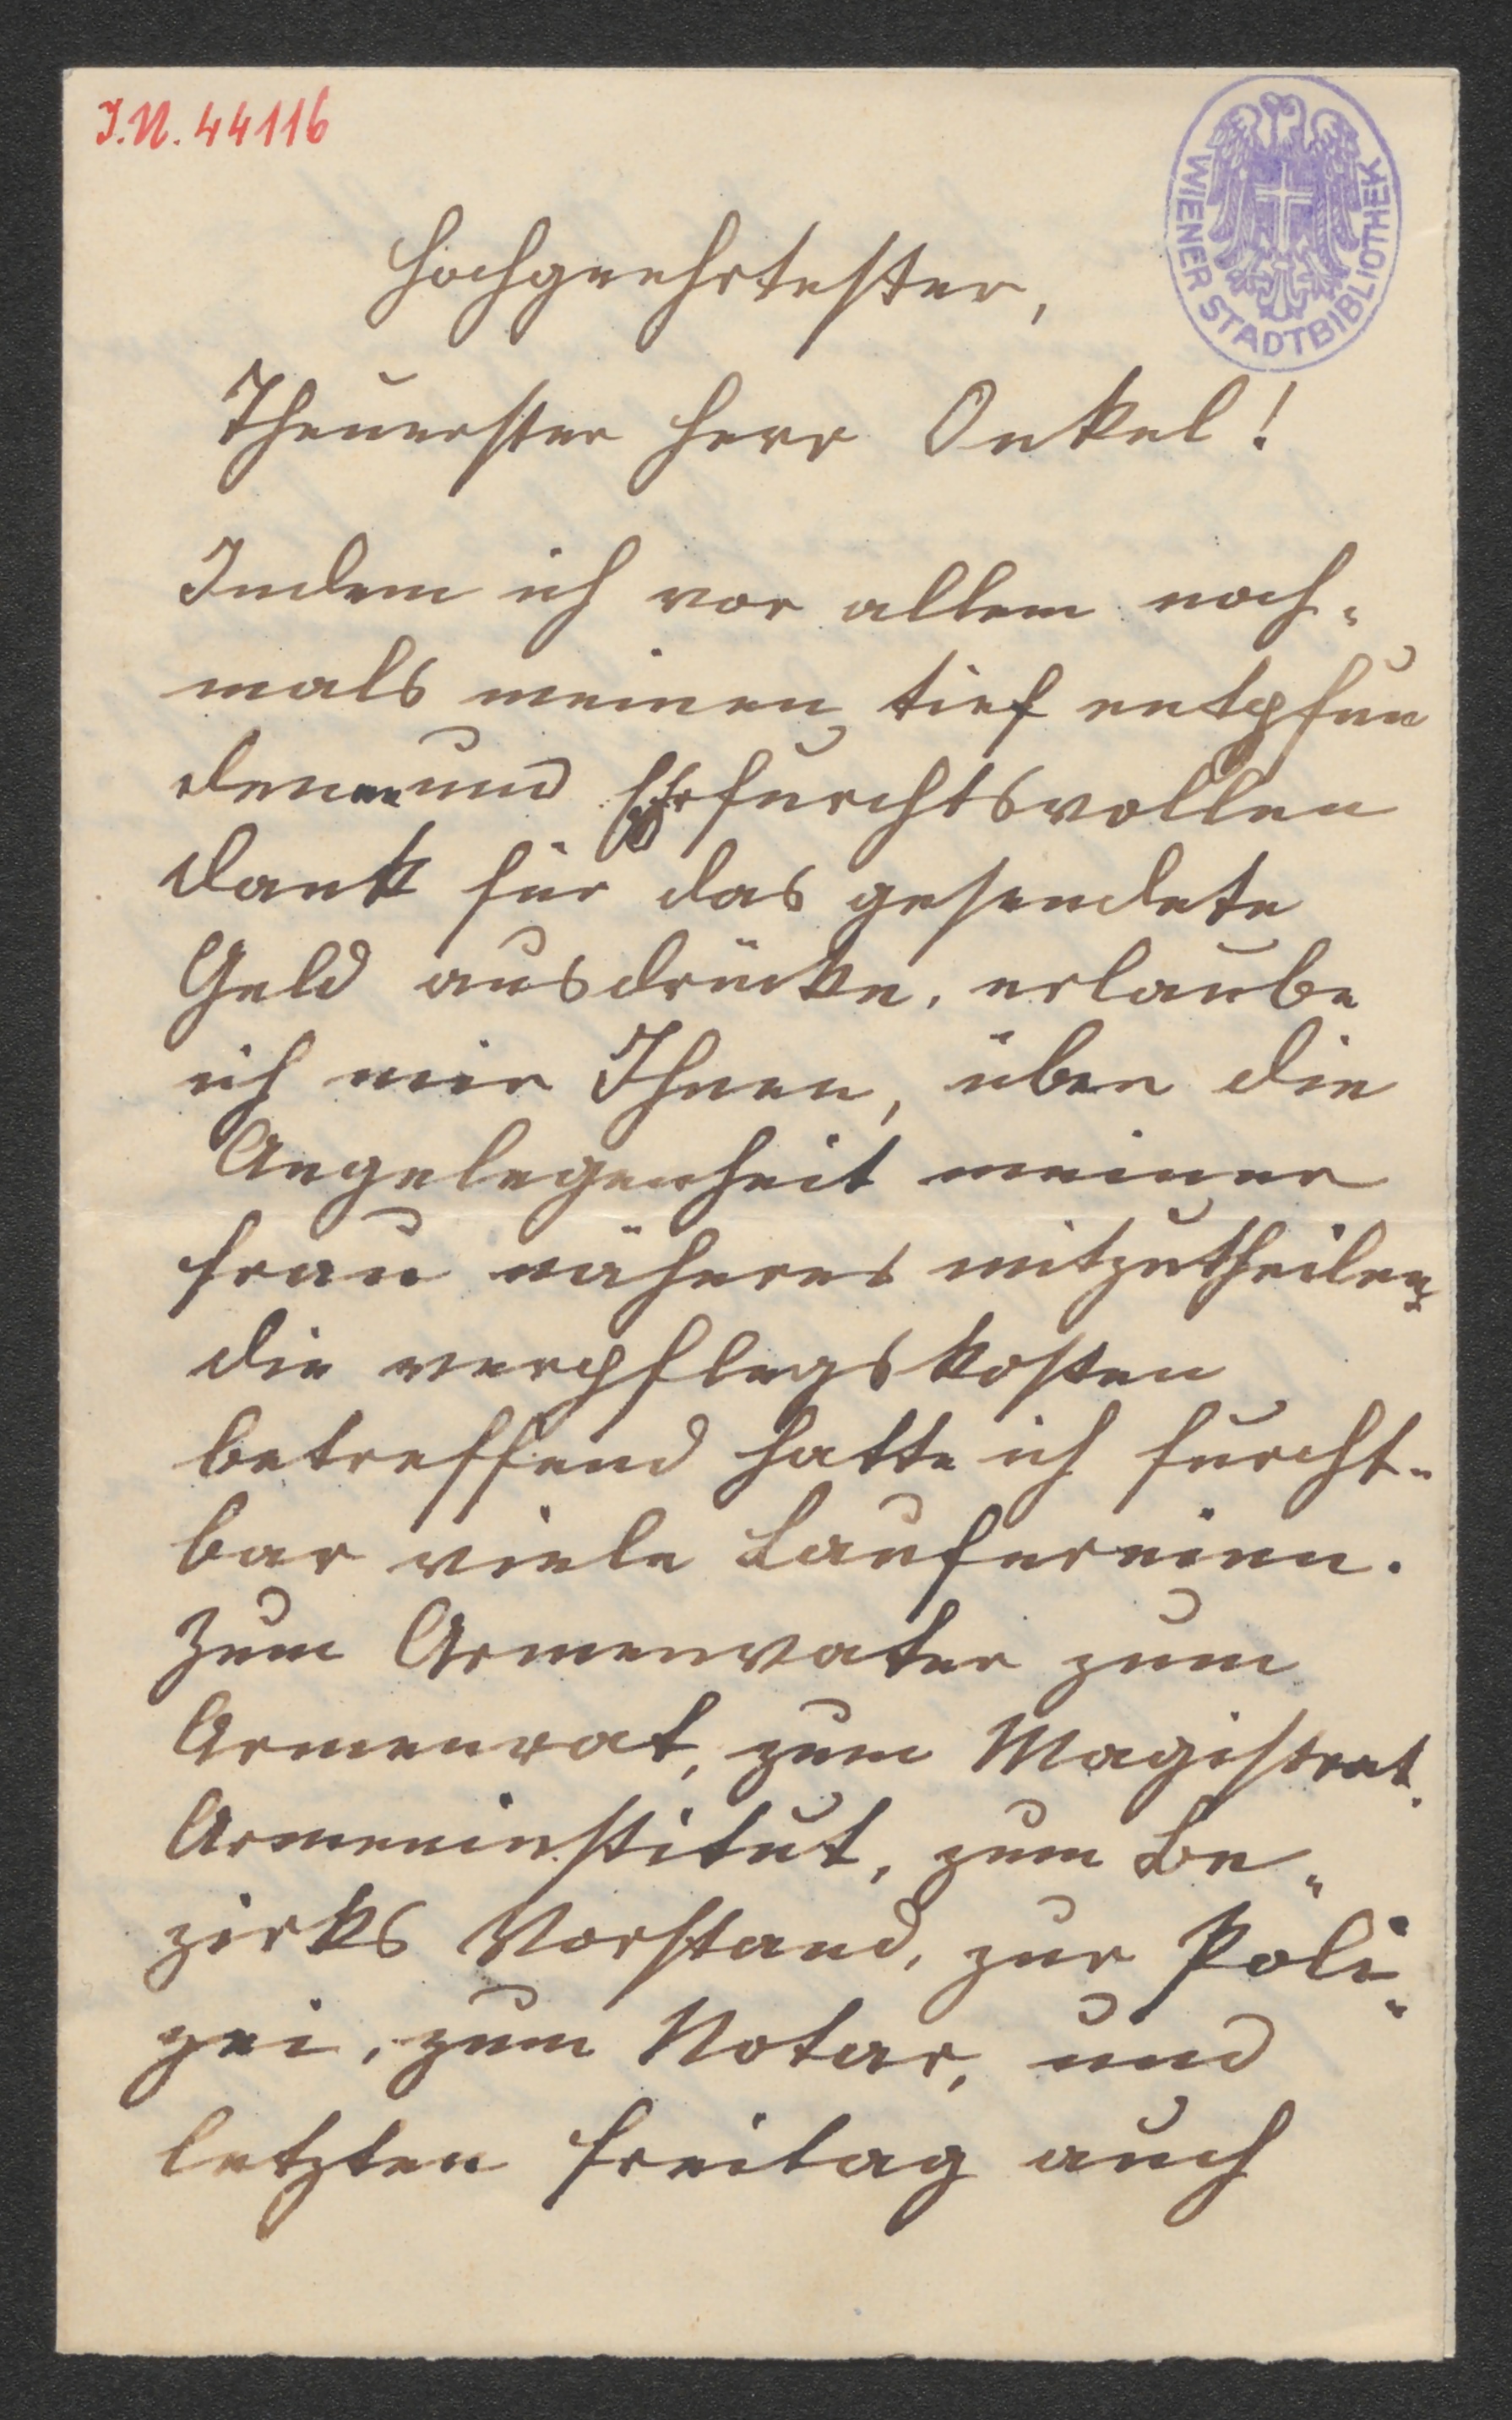 I.N. 44116
WIENER STADTBIBLIOTHEK
Hochgeehrtester,
Theuerster Herr Onkel!
Indem ich vor allem noch-
mals meinen tief entpfun
denen und Ehrfurchtsvollen
dank für das gesendete
Geld ausdrücke, erlaube
ich mir Ihnen, über die
Angelegenheit meiner
Frau näheres mitzutheilen,
die verpflegskosten
betreffend hatte ich furcht-
bar viele Laufereien.
Zum Armenvater zum
Armenrat, zum Magistrat.
Armeninstitut, zum Be-
zirks Vorstand, zur Poli-
zei, zum Notar, und
letzten Freitag auch